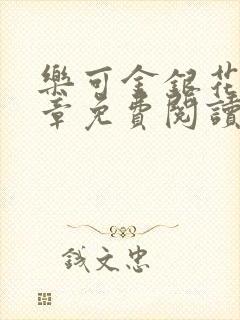 樂可金銀花
章免費閱讀
錢文忠